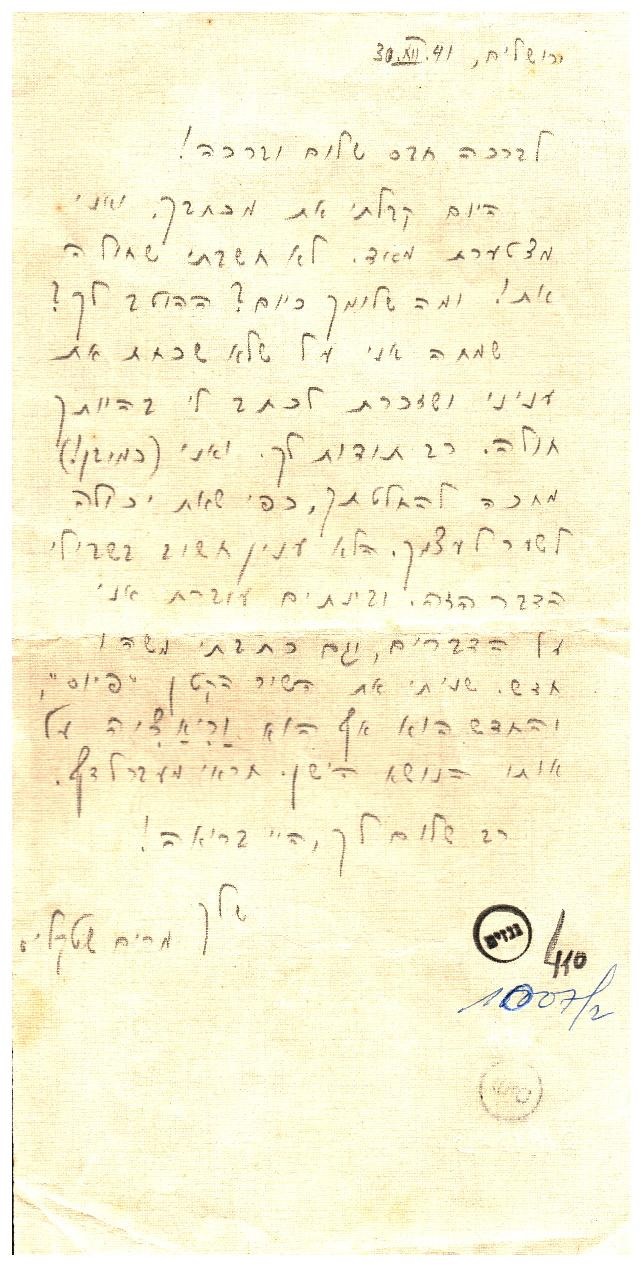 ירושלים, 30.VII.41
לברכה חבס שלום וברכה!
היום קבלתי את מכתבך, ואני
מצטערת מאד. לא חשבתי שחולה
את! ומה שלומך כיום? ההוטב לך?
שמחה אני על שלא שכחת את
עניני ושזכרת לכתב לי בהיותך
חולה. רב תודות לך. ואני (כמובן!)
מחכה להחלטתך, כפי שאת יכולה
לשער לעצמך. הלא ענין חשוב בשבילי
הדבר הזה. ובינתים עוברת אני
על הדברים, וגם כתבתי משהו
חדש. שניתי את השיר הקטן "פיוס",
והחדש הוא אף הוא וריאציה על
אותו הנושא הישן. תראי מעבר לדף.
רב שלום לך, היי בריאה!
שלך
מרים שטקליס
גנזים
410
1007/2